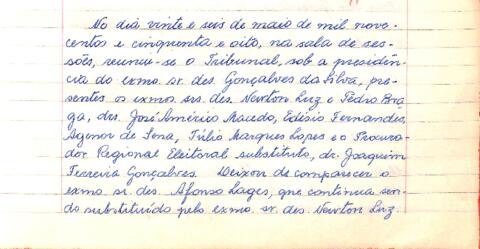 No dia vinte e seis de maio de mil nove-
centos e cinquenta e oito, na sala de ses-
sões, reuniu-se o Tribunal, sob a presidên-
cia do exmo. sr. des. Gonçalves da Silva, pre-
sentes os exmos. srs. des. Newton Luz e Pedro Bra-
ga, drs. José Américo Macedo, Edésio Fernandes,
Agenor de Sena, Túlio Marques Lopes e o Procura-
dor Regional Eleitoral substituto, dr. Joaquim
Ferreira Gonçalves. Deixou de comparecer o
exmo. sr. des. Afonso Lages, que continua sen-
do substituído pelo exmo. sr. des. Newton Luz.